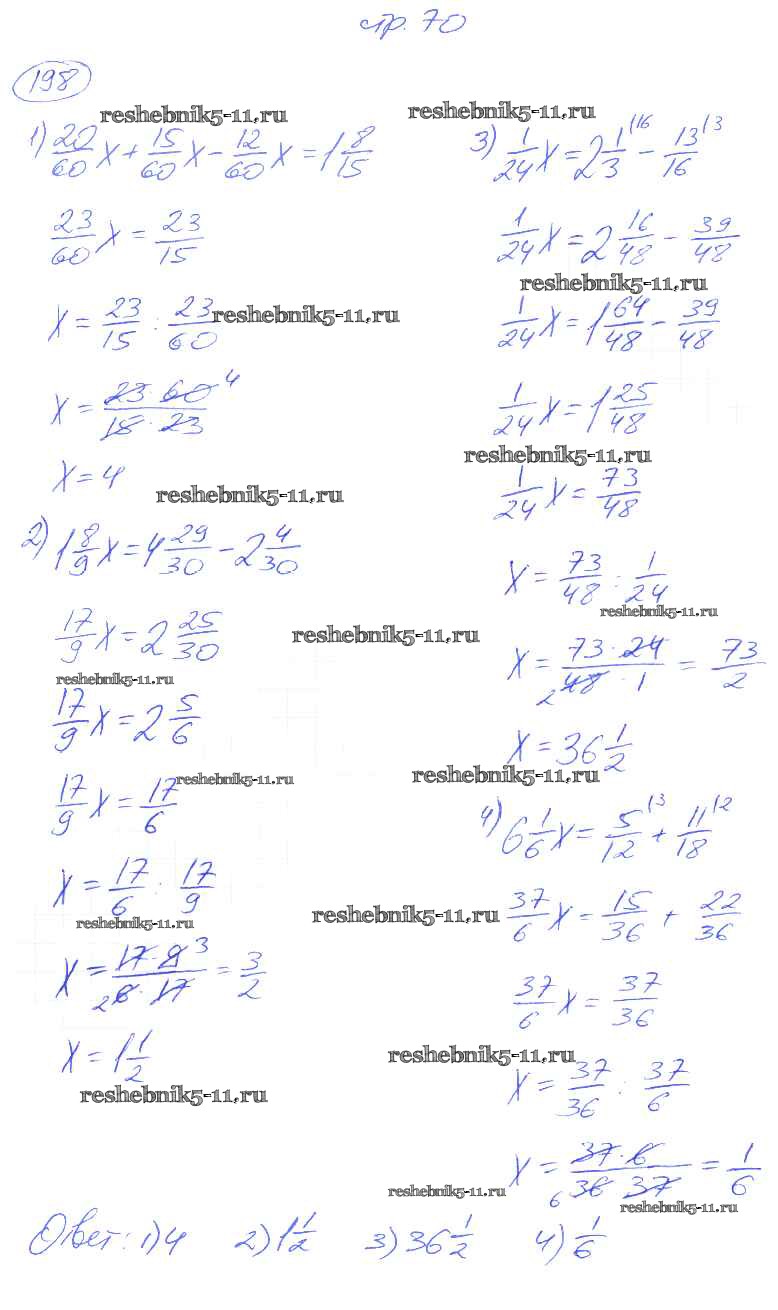 стр. 70
198
reshebnik5-11.ru
1) 20/60 x + 15/60 x - 12/60 x = 1 8/15
23/60 x = 23/15
x = 23/15 : 23/60
reshebnik5-11.ru
x = 23·60 4 / 15·23
x = 4
reshebnik5-11.ru
2) 1 8/9 x = 4 29/30 - 2 4/30
17/9 x = 2 25/30
reshebnik5-11.ru
reshebnik5-11.ru
17/9 x = 2 5/6
reshebnik5-11.ru
17/9 x = 17/6
x = 17/6 : 17/9
reshebnik5-11.ru
x = 17·9 3 / 2 6·17 = 3/2
x = 1 1/2
reshebnik5-11.ru
reshebnik5-11.ru
3) 1/24 x = 2 1/3 |16 - 13/16 |3
1/24 x = 2 16/48 - 39/48
reshebnik5-11.ru
1/24 x = 1 64/48 - 39/48
1/24 x = 1 25/48
reshebnik5-11.ru
1/24 x = 73/48
x = 73/48 : 1/24
reshebnik5-11.ru
x = 73·24 / 2 48·1 = 73/2
x = 36 1/2
reshebnik5-11.ru
4) 6 1/6 x = 5/12 |3 + 11/18 |2
reshebnik5-11.ru
37/6 x = 15/36 + 22/36
37/6 x = 37/36
reshebnik5-11.ru
x = 37/36 : 37/6
x = 37·6 / 6 36 37 = 1/6
reshebnik5-11.ru
reshebnik5-11.ru
Ответ: 1) 4 2) 1 1/2 3) 36 1/2 4) 1/6